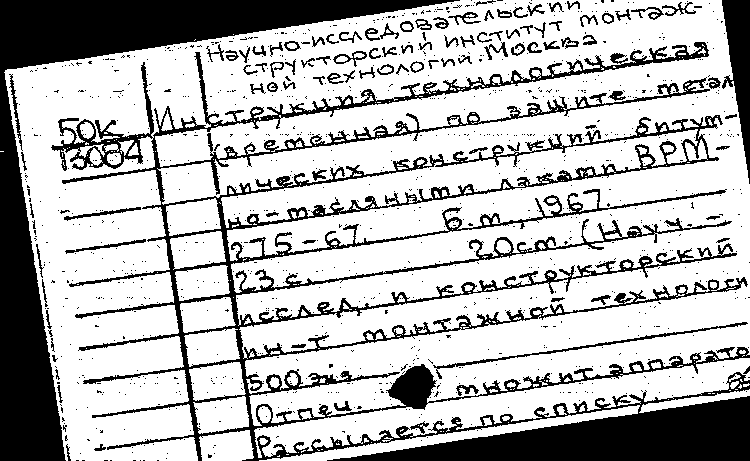 Научно-исследовательский
структорский институт монтаж-
ной технологии. Москва.
50к Инструкция технологическая
13084 (временная) по защите метал
лических конструкций битум-
но-масляными лаками. ВРМ-
275-67. Б.м., 1967.
23 с. 20см. (Науч.-
исслед. и конструкторский
ин-т монтажной технологи
500 экз.
Отпеч. множит. аппарато
Рассылается по списку.